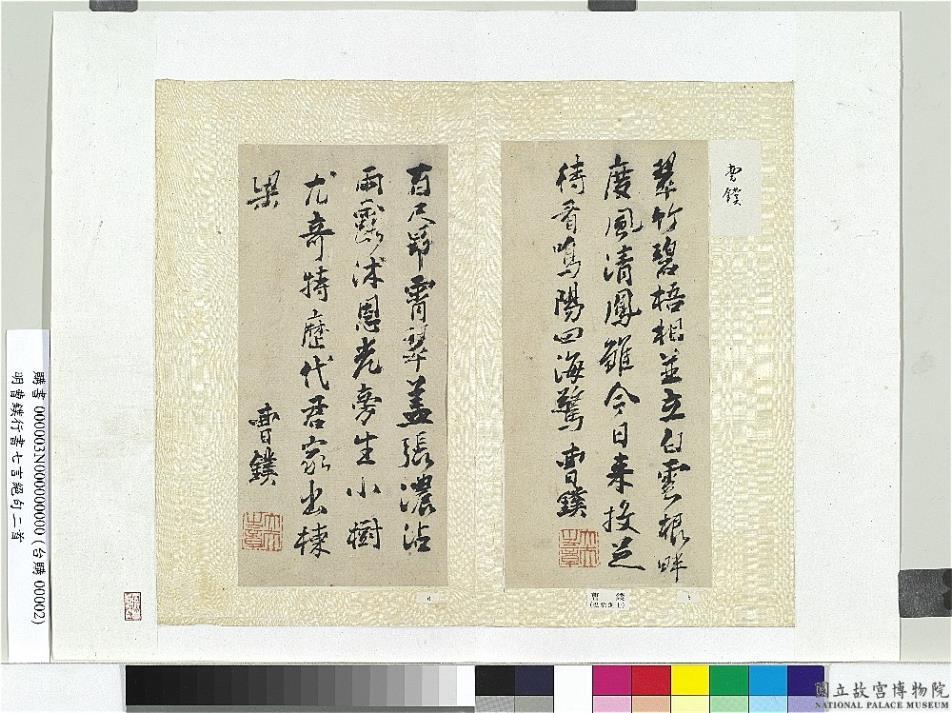 曹鏷
翠竹碧梧相並立白雲根畔
度風清鳳雛今日来投老
待看鳴陽四海驚 曹鏷
百尺昂霄翠蓋張濃沾
雨露沐恩光旁生小樹
尤奇特歷代君家出棟
梁
曹鏷
曹 鏷
購書 000003N000000000 (台購 00002)
明曹鏷行書七言絕句二首
國立故宮博物院
NATIONAL PALACE MUSEUM